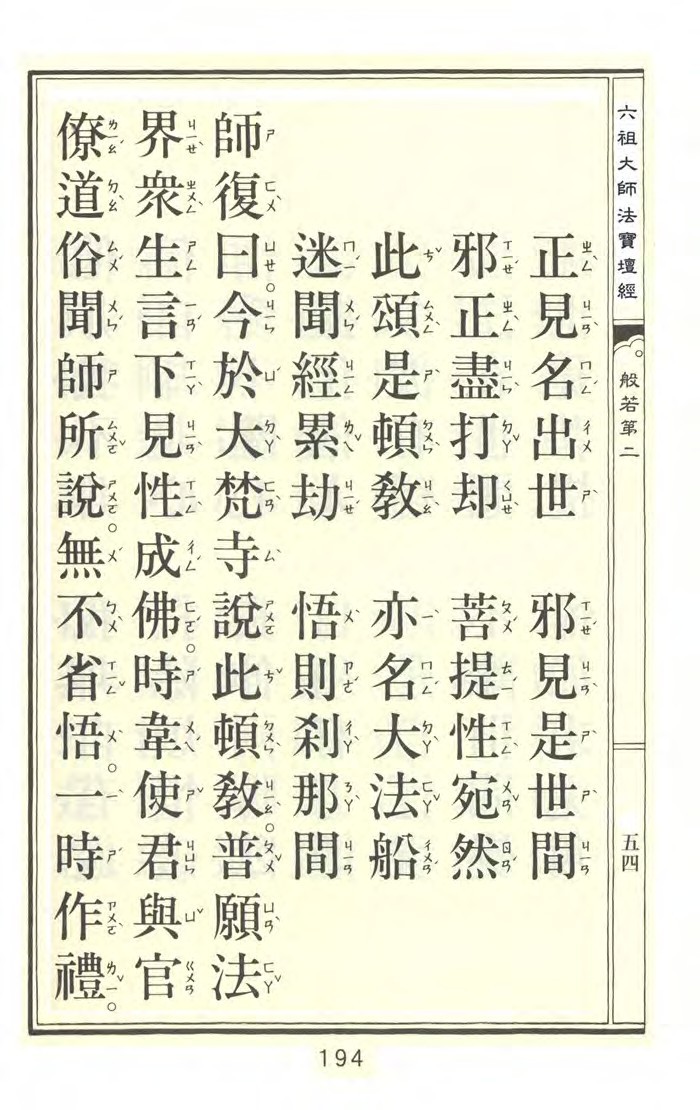 六祖大師法寶壇經 般若第二 五四
正見名出世 邪見是世間
邪正盡打却 菩提性宛然
此頌是頓教 亦名大法船
迷聞經累劫 悟則刹那間
師復曰。今於大梵寺說此頓教。普願法
界衆生言下見性成佛。時韋使君與官
僚道俗聞師所說。無不省悟。一時作禮。
194